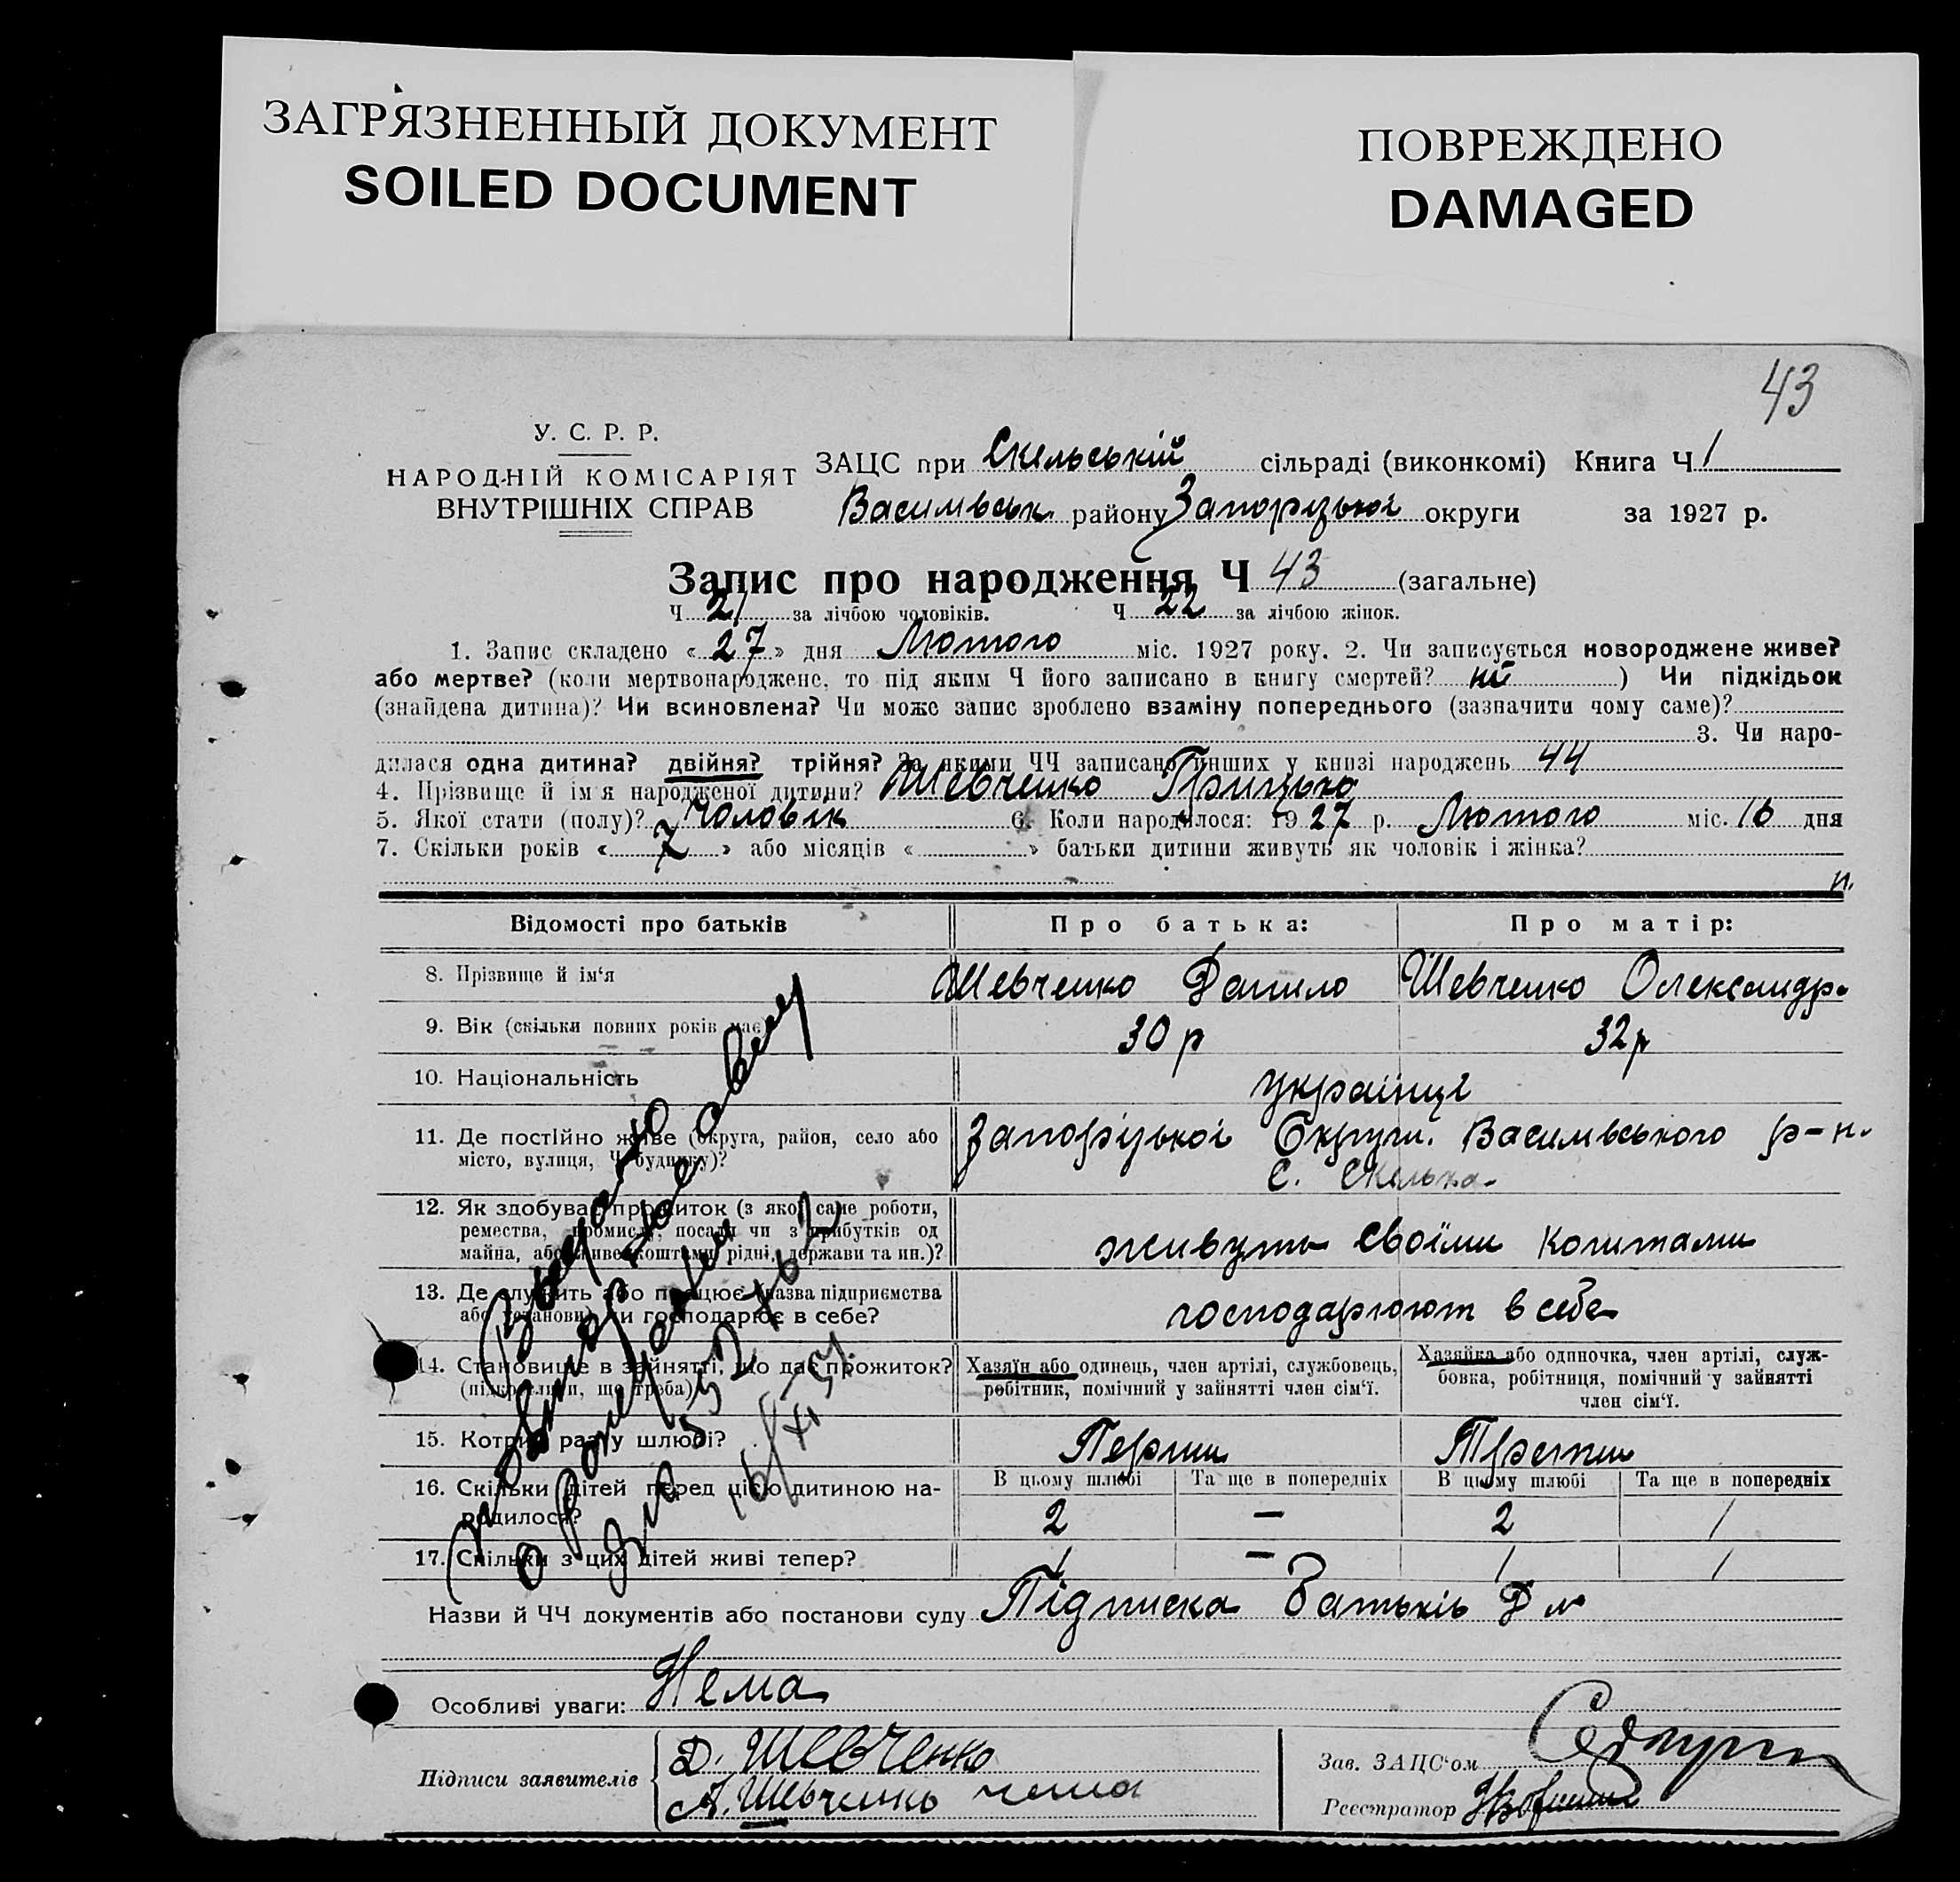 ЗАГРЯЗНЕННЫЙ ДОКУМЕНТ
SOILED DOCUMENT
ПОВРЕЖДЕНО
DAMAGED
43
У. С. Р. Р.
НАРОДНІЙ КОМІСАРІЯТ
ВНУТРІШНІХ СПРАВ
ЗАЦС при Скельській сільраді (виконкомі) Книга Ч 1
Васильвськ. району Запорізької округи за 1927 р.
Запис про народження Ч 43 (загальне)
Ч 21 за лічбою чоловіків. Ч 22 за лічбою жінок.
1. Запис складено « 27 » дня Лютого міс. 1927 року. 2. Чи записується новороджене живе?
або мертве? (коли мертвонароджене, то під яким Ч його записано в книгу смертей? ні ) Чи підкідьок
(знайдена дитина)? Чи всиновлена? Чи може запис зроблено взаміну попереднього (зазначити чому саме)?
3. Чи наро-
дилася одна дитина? двійня? трійня? За якими ЧЧ записано инших у книзі народжень 44
4. Прізвище й ім'я народженої дитини? Шевченко Грицько
5. Якої стати (полу)? Чоловік 6. Коли народилося: 1927 р. Лютого міс. 16 дня
7. Скільки років « 7 » або місяців « » батьки дитини живуть як чоловік і жінка?
Відомості про батьків Про батька: Про матір:
8. Прізвище й ім'я Шевченко Данило Шевченко Олександра
9. Вік (скільки повних років має) 30 р 32 р
10. Національність українці
11. Де постійно живе (округа, район, село або Запорізької Округи. Васильвського р-н.
місто, вулиця, Ч будинку)? С. Скелька.
12. Як здобуває прожиток (з якої саме роботи,
ремества, промислу, посади чи з прибутків од
майна, або живе коштами рідні, держави та ин.)? живуть своїми коштами
13. Де служить або працює (назва підприємства
або установи) чи господарює в себе? господарюют в себе
14. Становище в зайнятті, що дає прожиток?
(підкреслити, що треба)
Хазяїн або одинець, член артілі, службовець,
робітник, помічний у зайнятті член сім'ї.
Хазяйка або одиночка, член артілі, служ-
бовка, робітниця, помічний у зайнятті
член сім'ї.
15. Котрий раз у шлюбі? Перши Трети
В цьому шлюбі Та ще в попередніх В цьому шлюбі Та ще в попередніх
16. Скільки дітей перед цією дитиною на-
родилося? 2 — 2 1
17. Скільки з цих дітей живі тепер? 1 — 1 1
Назви й ЧЧ документів або постанови суду Підписка Батьків
Особливі уваги: Нема
Підписи заявителів Д. Шевченко
А. Шевченко
Зав. ЗАЦС'ом
Реєстратор